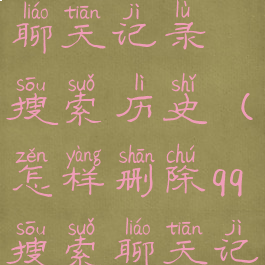 liáo tiān jì lù
聊天记录
sōu suǒ lì shǐ
搜索历史(
zěn yàng shān chú
怎样删除qq
sōu suǒ liáo tiān jì
搜索聊天记